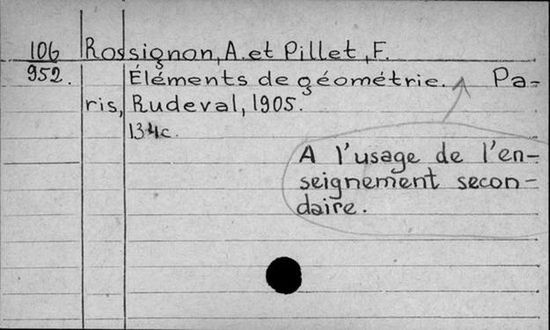 106 Rossignon, A. et Pillet, F.
952. Éléments de géométrie. Pa-
ris, Rudeval, 1905.
134c.
A l'usage de l'en-
seignement secon-
daire.